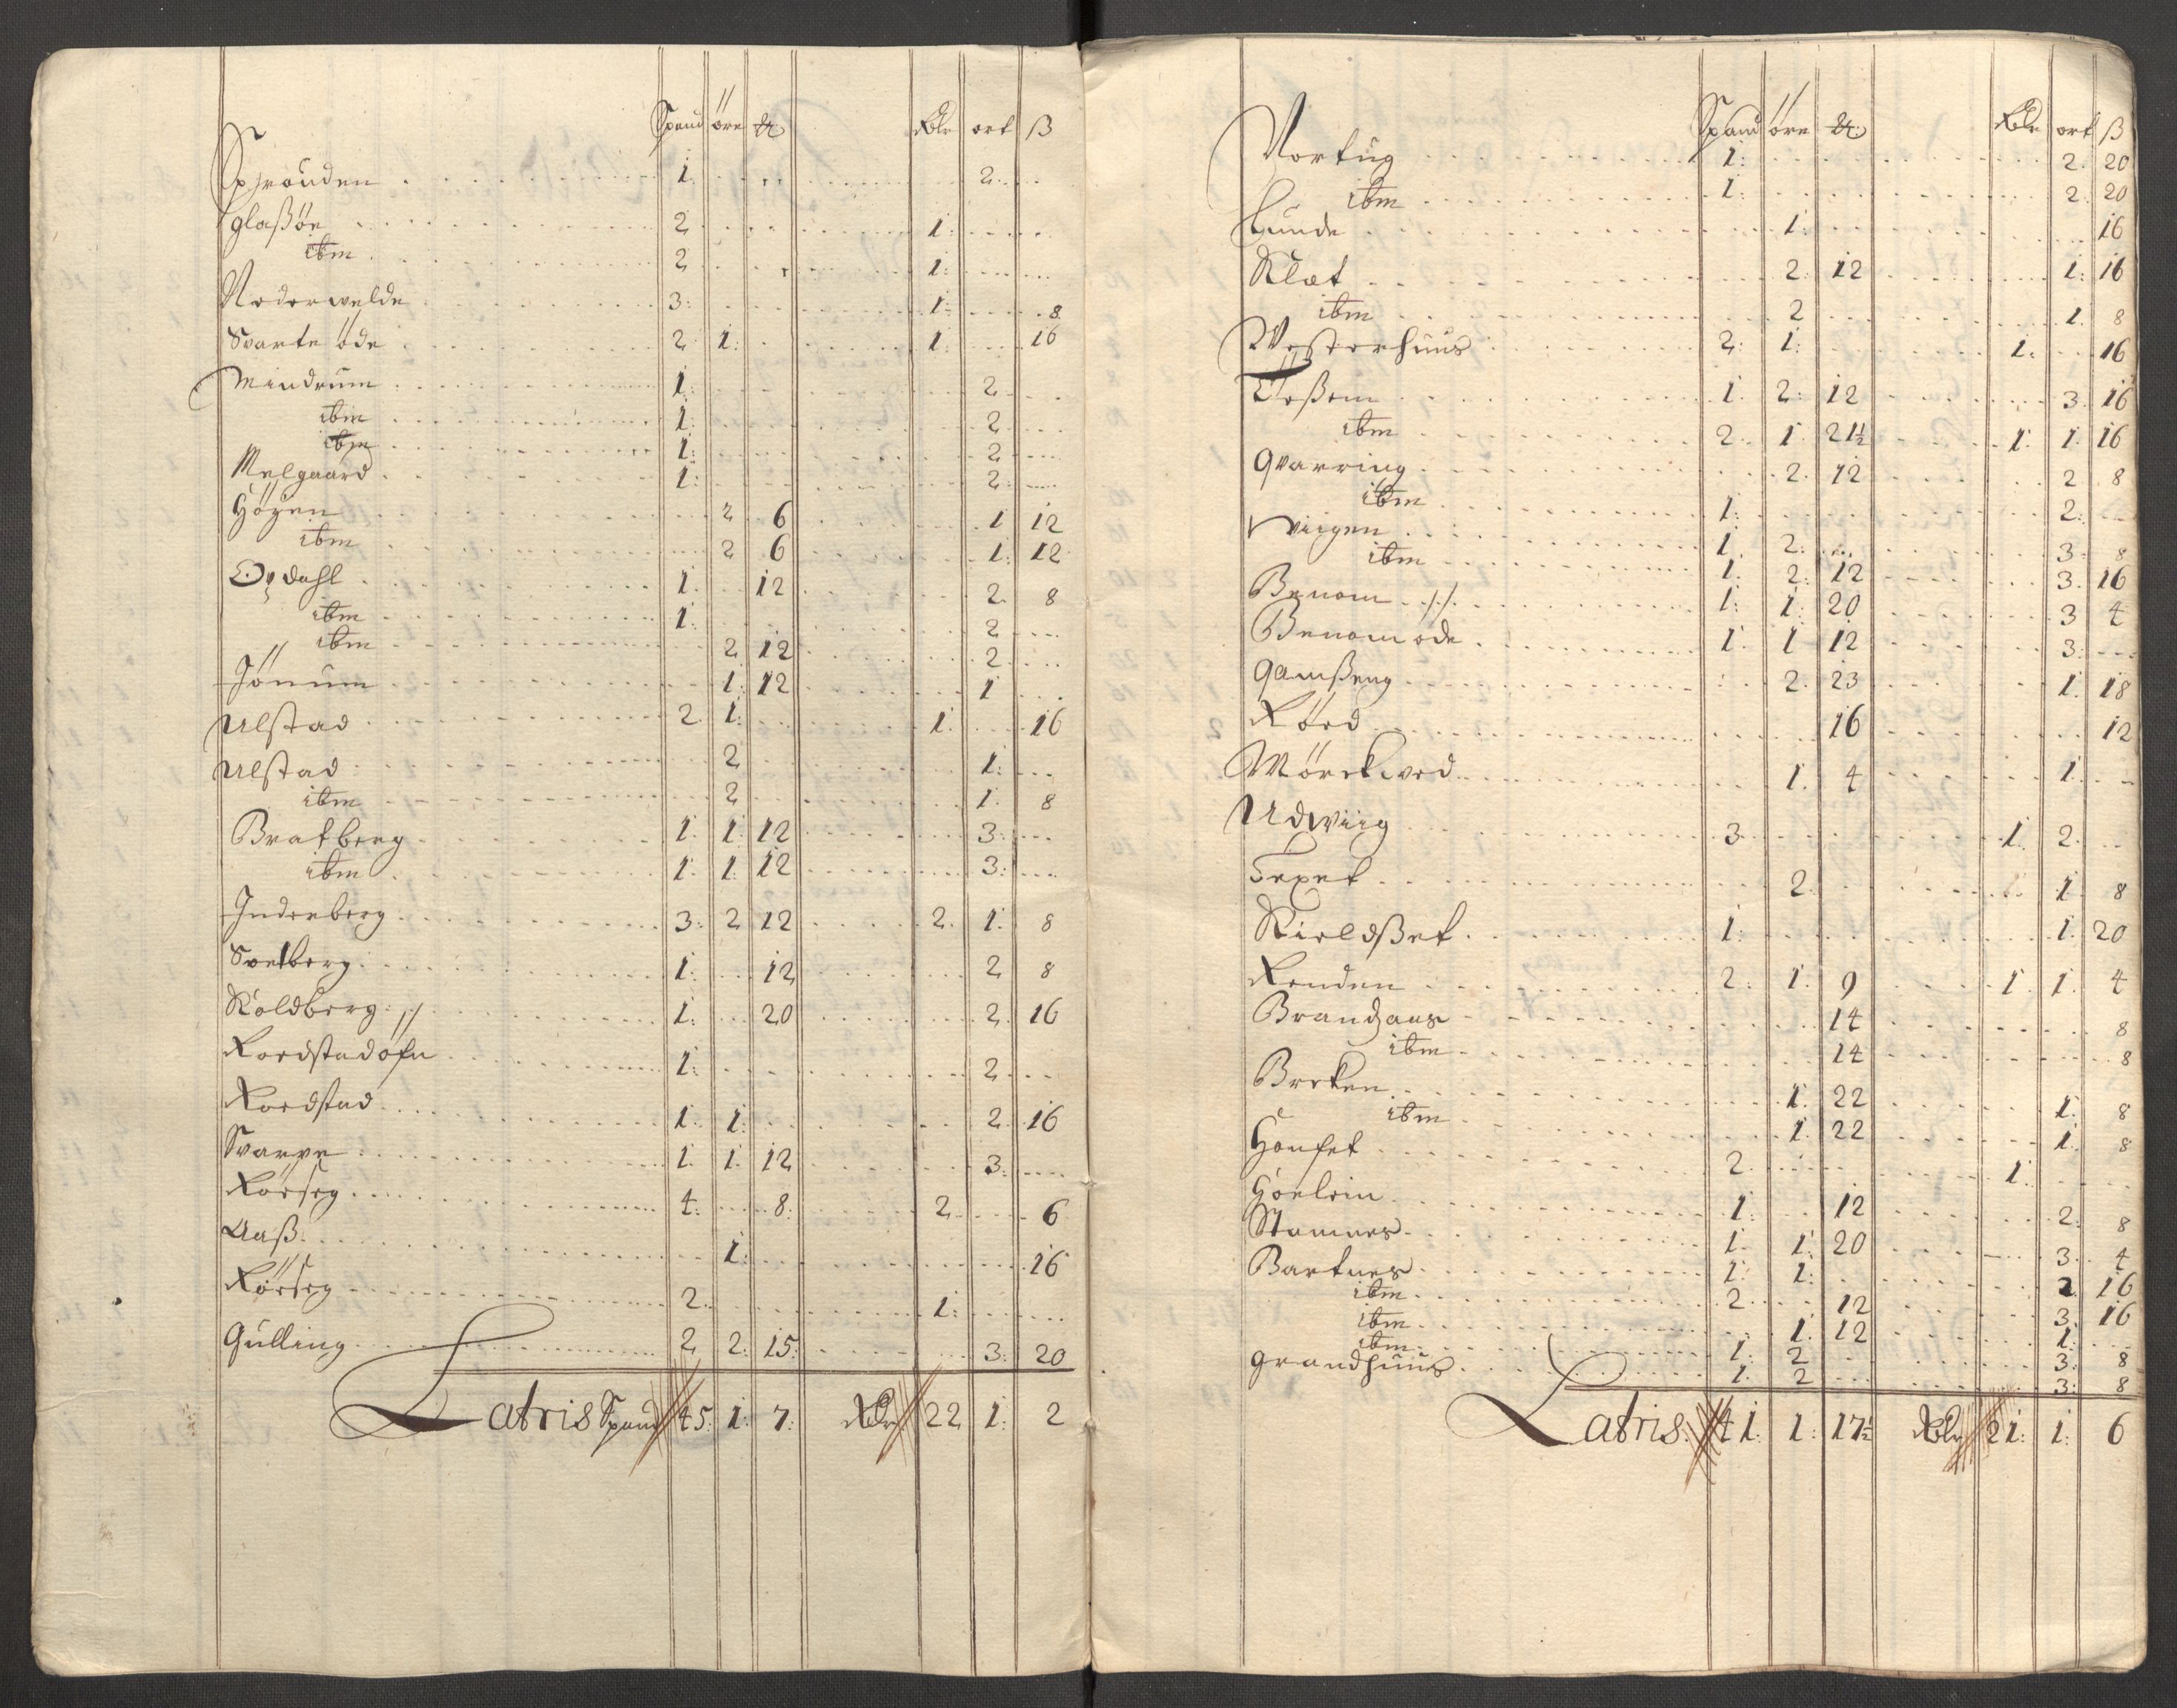 Spand öre Rdlr ort ß
Sprouden 1. 2.
glaßöe 2 1:
ibm 2 1:
Nederwelde 3: 1: 8
Svarte öde 2 1: 1: 16
Mindrum 1: 2
ibm 1: 2
ibm 1: 2
Melgaard 1: 2:
Höyen 2 6 1 12
ibm 2 6 1: 12
Opdahl 1: 12 2 8
ibm 1: 2
ibm 2 12 2
Jönum 1: 12 1
Ulstad 2 1: 1: 16
Ulstad 2 1:
ibm 2 1: 8
Bratberg 1: 1: 12 3:
ibm 1: 1: 12 3:
Inderberg 3: 2 12 2 1: 8
Svelberg 1: 12 2 8
Koldberg 1: 20 2 16
Roedstadöfn 1: 2
Roedstad 1: 1: 2 16
Svarve 1: 1: 12 3:
Rörseg 4: 8: 2 6
Aaß 1: 16
Rörseg 2 1:
Gulling 2 2: 15: 3: 20
Latris Spand 45: 1: 7: Rdlr 22 1: 2
Spand öre Rdlr ort ß
Nortug 1: 2. 20
ibm 1: 2. 20
Lunde 1: 16
Klæt 2: 12 1: 16
ibm 2 1. 8
Westerhuus 2: 1: 1: 16
Eloßem 1: 2: 12 3. 16
ibm 2. 1. 21½ 1: 1. 16
Qvarring 2. 12 2 8
ibm 1: 2:
Viigen 1. 2: 3: 8
ibm 1: 2: 12 3. 16
Benom 1: 1: 20 3 4
Benom öde 1: 1 12 3:
Gamßeng 2. 23 1. 18
Röed 16 12
Mörckved 1. 4 1.
Udwiig 3. 1. 2.
Texet 2. 1. 8
Kieldßet 1: 1. 20
Renden 2: 1. 9 1. 1. 4
Brandzaas 14 8
ibm 14 8
Breken 1: 22 1: 8
ibm 1: 22 1: 8
Houfet 2. 1:
Hoelein 1: 12 2: 8
Stamnes 1. 1: 20 3. 4
Bartnes 1: 1: 2. 16
ibm 2 12 3. 16
ibm 1: 12 1:
ibm 1: 2 3: 8
grandhuus 1: 2 3: 8
Latris 41: 1: 17½ Rdlr 21: 1: 6